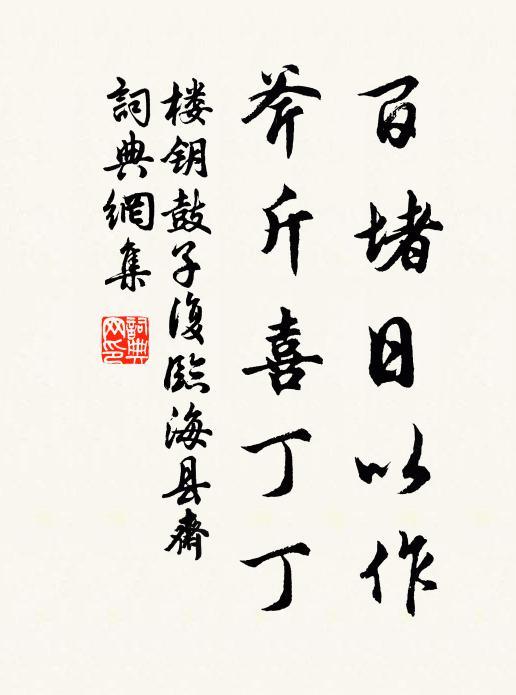 百堵日以作
斧斤喜丁丁
楼钥鼓子复临海县斋
詞典網集
詞典网印